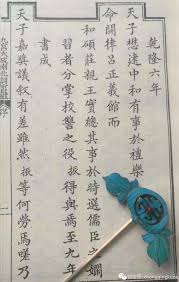 乾隆六年
天子懋建中和有事於禮樂
命開律呂正義館而
和碩莊親王實總其事於時選儒臣之嫻
習者分掌校讐之役振得與焉至九年
書成
天子嘉奬議敘有差雖然振等何勞焉乃
九宮大成南北詞宮譜
序
一